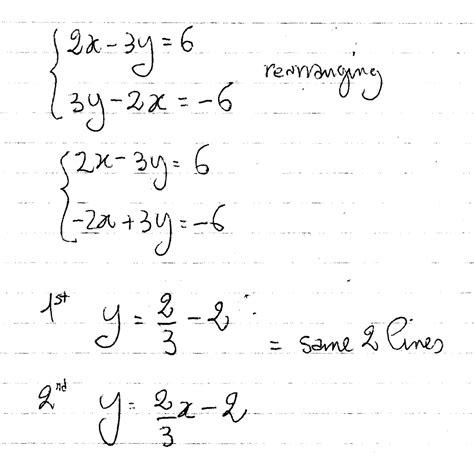 2x - 3y = 6
rearranging
3y - 2x = -6
2x - 3y = 6
-2x + 3y = -6
1st y = 2/3 - 2
= same 2 lines
2nd y = 2/3 x - 2